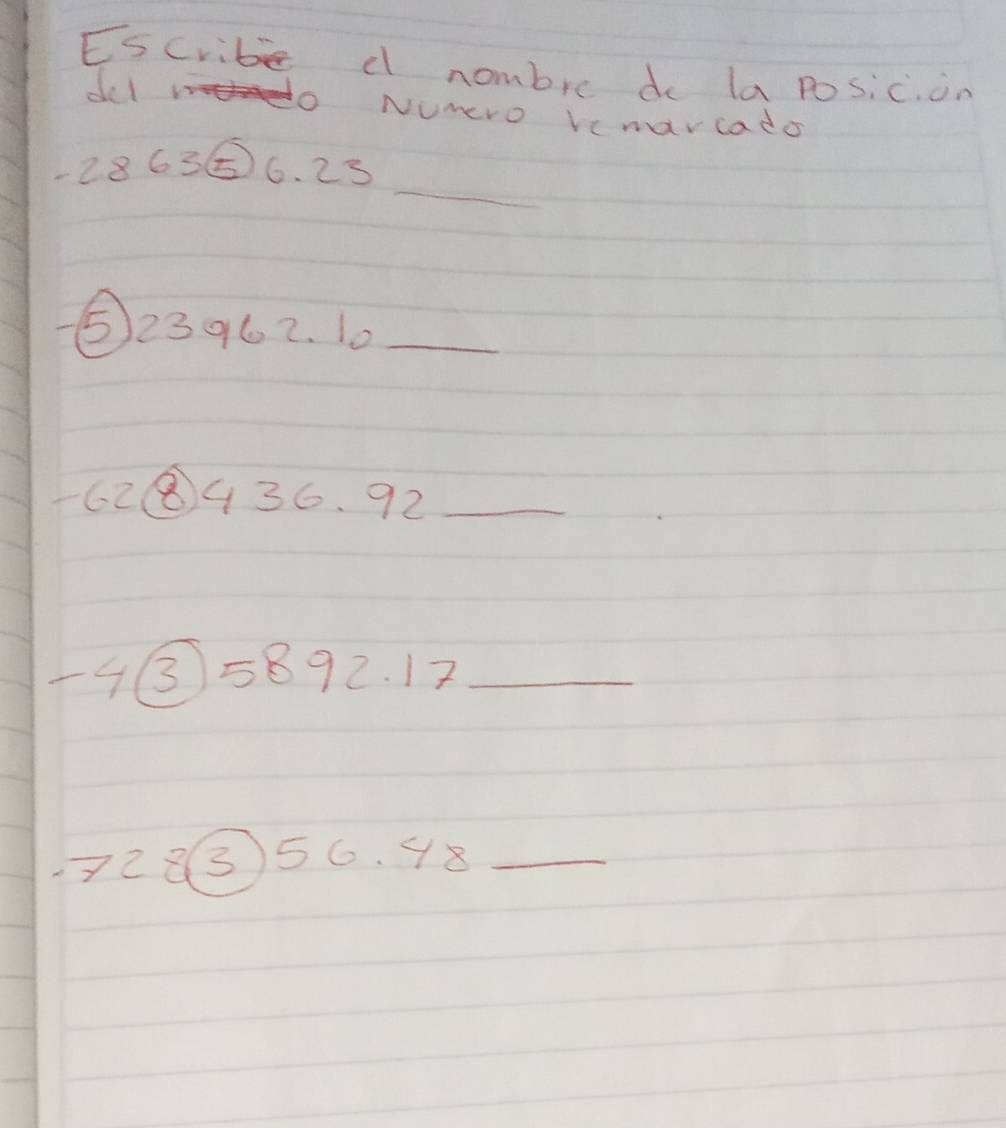 Escribe el nombre de la posición
del Numero remarcado
-286356.23
-523962.10
-628436.92
-435892.17
-728356.48